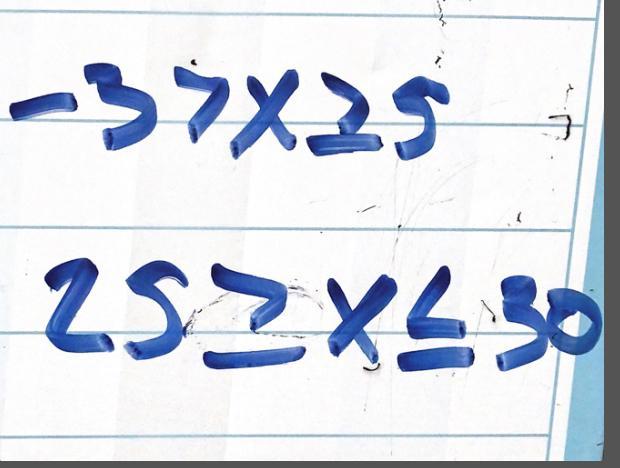 -3 > x ≥ 5
25 ≥ x ≤ 30